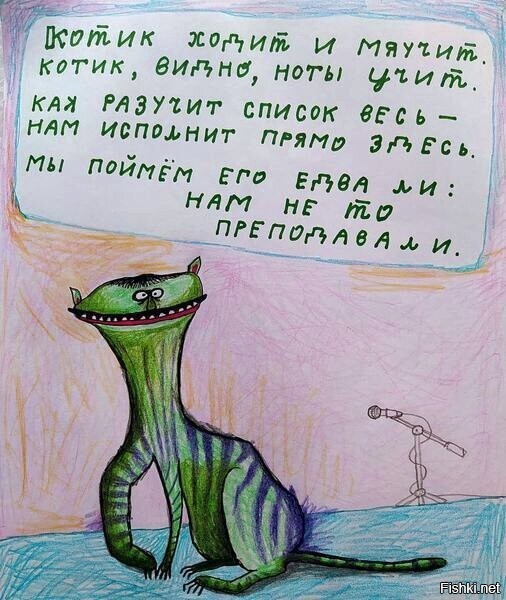 Котик ходит и мяучит.
котик, видно, ноты учит.
как разучит список весь –
нам исполнит прямо здесь.
мы поймём его едва ли:
нам не то
преподавали.
Fishki.net